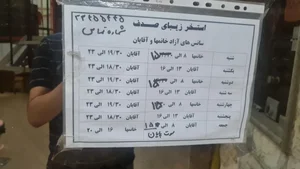 ۲۲۲۵۵۴۴۵
شماره تماس
استخر زیبای صدف
سانس های آزاد خانمها و آقایان
شنبه خانمها ۸ الی ۱۵ آقایان ۱۹/۳۰ الی ۲۳
یکشنبه آقایان ۱۳ الی ۱۶ آقایان ۱۸/۳۰ الی ۲۳
دوشنبه خانمها ۸ الی ۱۵ آقایان ۱۹/۳۰ الی ۲۳
سه شنبه آقایان ۱۳ الی ۱۶ آقایان ۱۸/۳۰ الی ۲۳
چهارشنبه خانمها ۸ الی ۱۵ آقایان ۱۹/۳۰ الی ۲۳
پنجشنبه آقایان ۱۳ الی ۱۶ آقایان ۱۸/۳۰ الی ۲۳
جمعه آقایان ۸ الی خانمها ۱۶ الی ۲۰